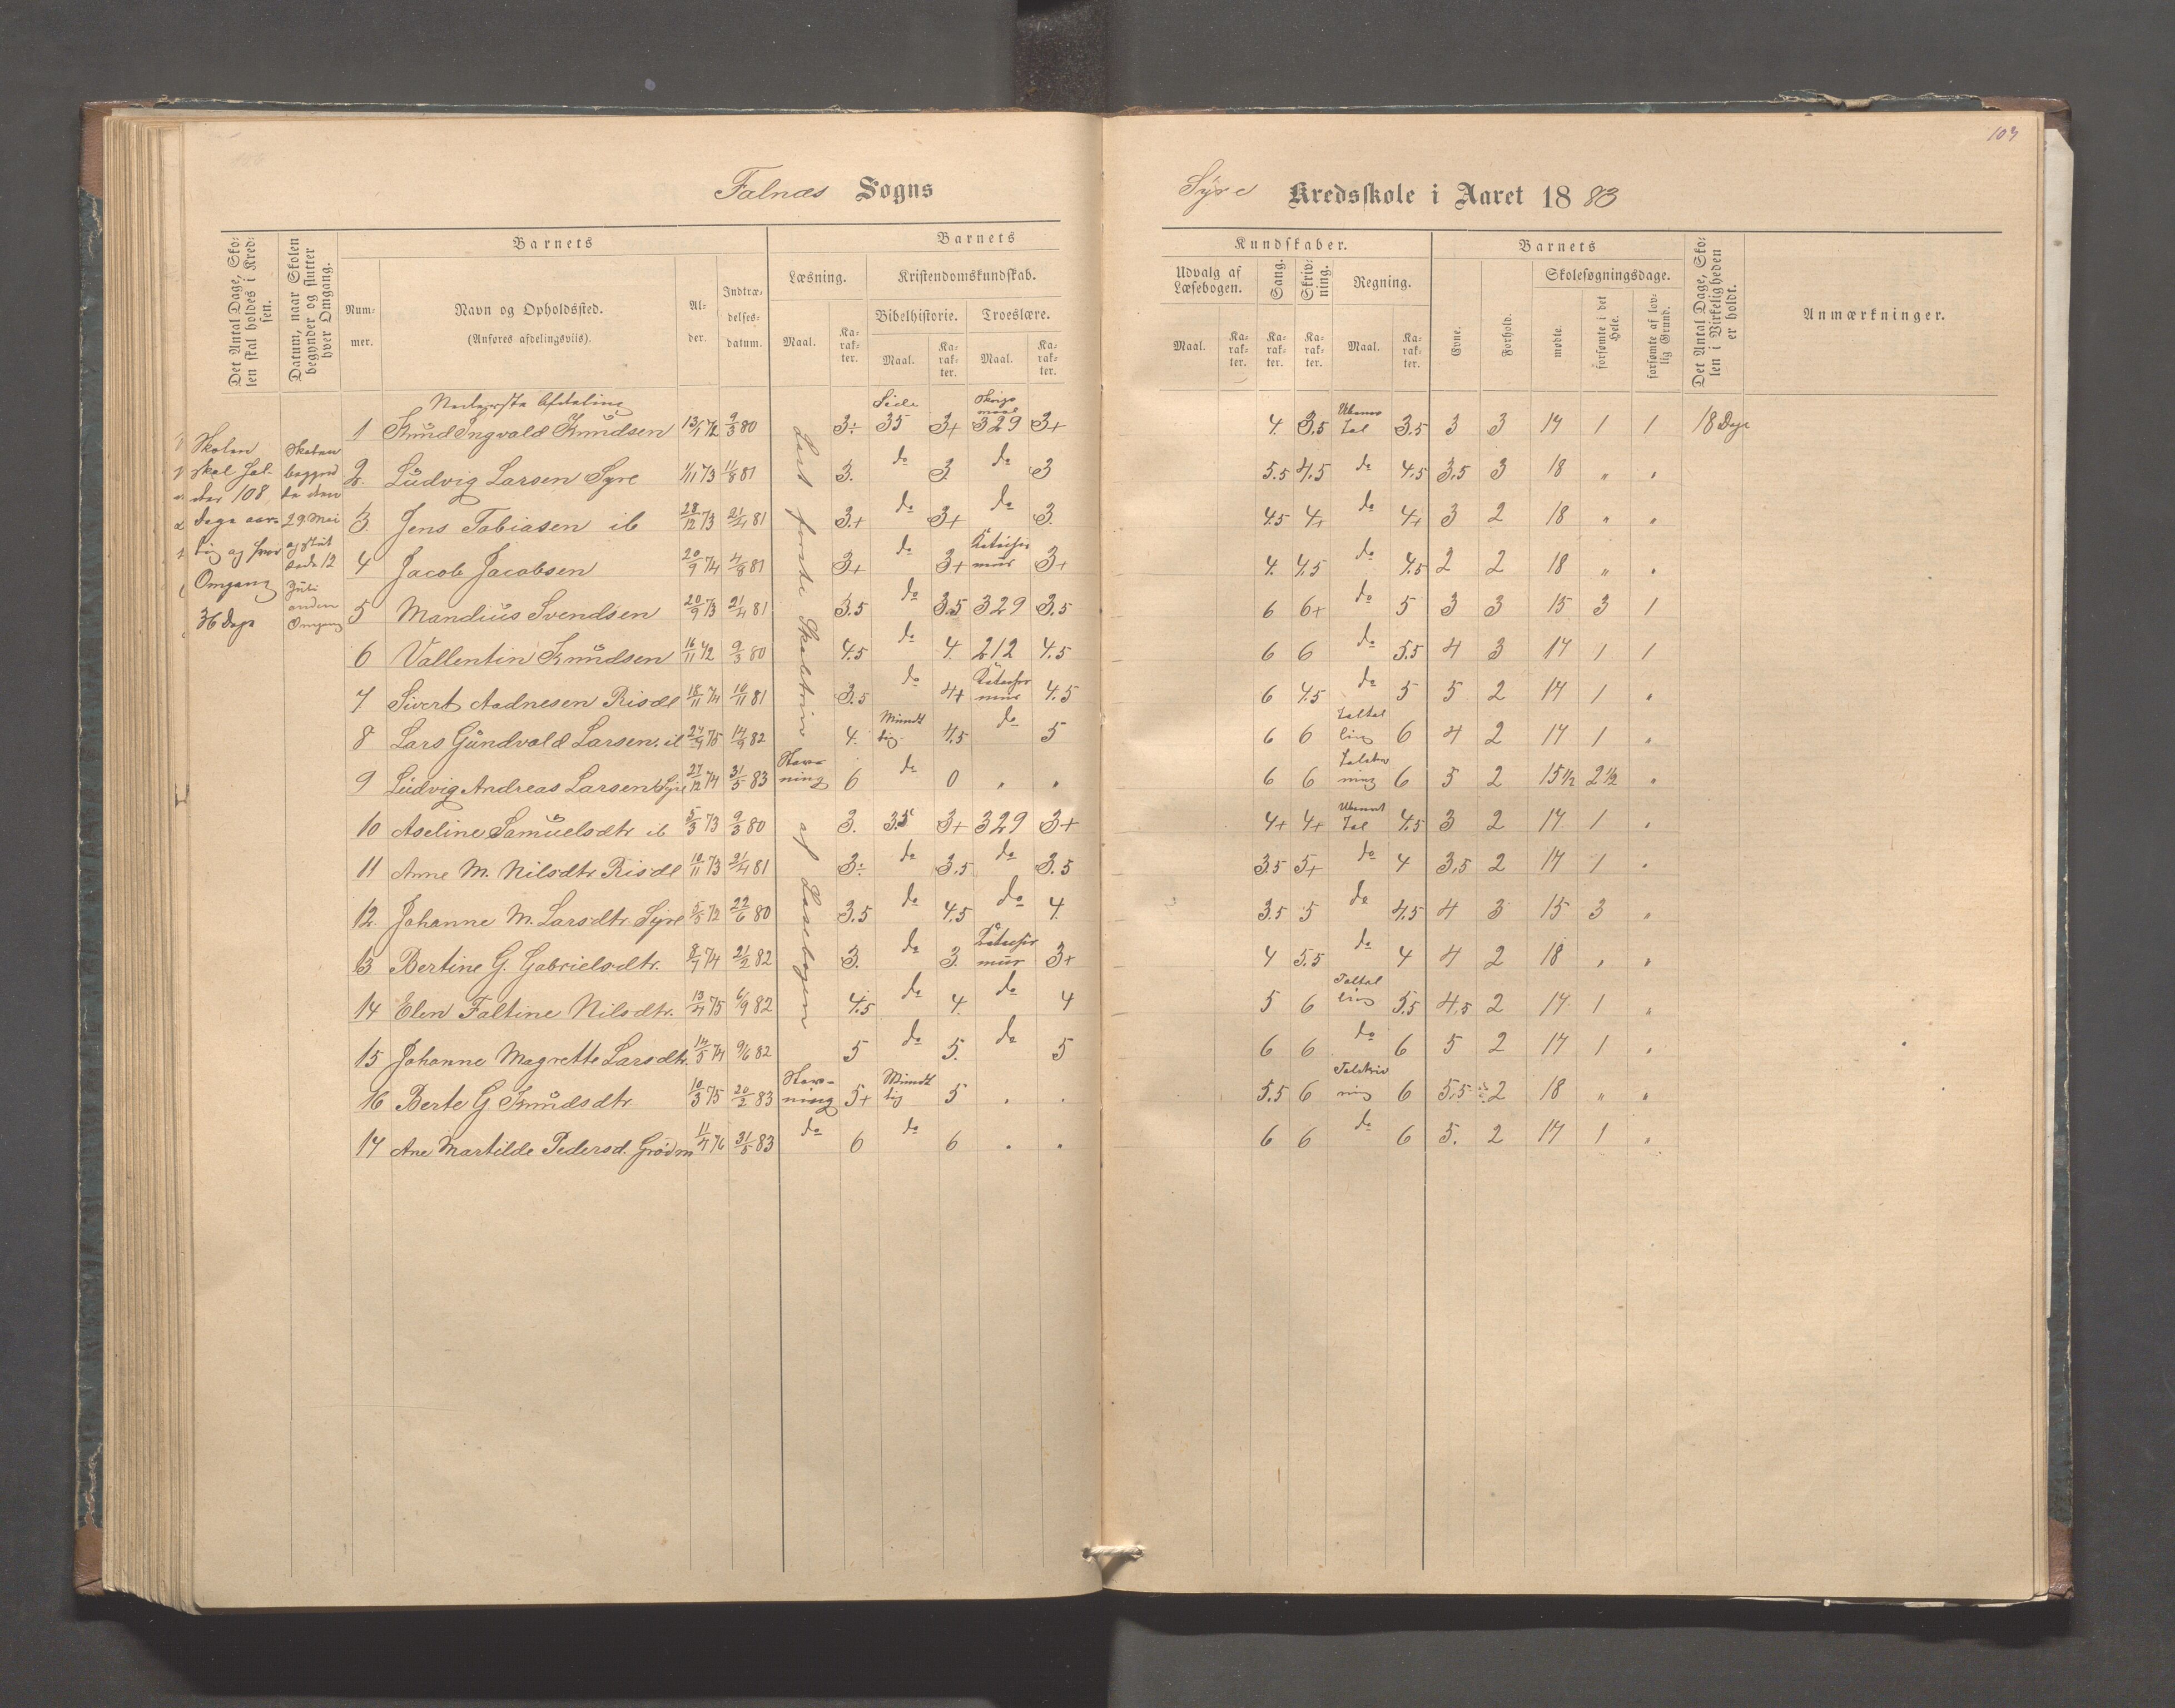 103
Falnæs Sogns
Syre Kredsskole i Aaret 1883
Det Antal Dage, Skolen skal holdes i Kredsen.
Datum, naar Skolen begynder og slutter hver Omgang.
Barnets
Nummer.
Navn og Opholdssted.
(Anføres afdelingsviis).
Alder.
Indtrædelsesdatum.
Barnets
Læsning.
Maal.
Karakter.
Kristendomskundskab.
Bibelhistorie.
Maal.
Karakter.
Troeslære.
Maal.
Karakter.
Kundskaber.
Udvalg af Læsebogen.
Maal.
Karakter.
Sang.
Karakter.
Skrivning.
Karakter.
Regning.
Maal.
Karakter.
Barnets
Evne.
Forhold.
Skolesøgningsdage.
mødte.
forsømte i det Hele.
forsømte af lovlig Grund.
Det Antal Dage, Skolen i Virkeligheden er holdt.
Anmærkninger.
Skolen
skal hol-
des 108
Dage aar-
lig og hver
Omgang
36 Dage
Skolen
begynd
te den
29 Mai
og slut
tede 12
Juli
anden
Omgang
Nederste Afdeling
Læst første Skoletrin af Læsebogen
1 Knud Ingvald Knudsen 13/1 72 9/3 80 3÷ Side 35 3+ 329 3+ 4. 3.5 Ubenvt Tal 3.5 3 3 17 1 1 18 Dage
2. Ludvig Larsen Syre 1/11 73 11/8 81 3. do 3. do 3 5.5 4.5 do 4.5 3.5 3 18 " "
3. Jens Tobiasen ib 28/12 73 21/4 81 3+ do 3+ do 3. 4.5 4+ do 4+ 3 2 18 " "
4 Jacob Jacobsen 20/9 74 4/8 81 3+ do 3+ 3+ 4. 4.5 do 4.5 2 2 18 " "
5 Mandius Svendsen 20/9 73 21/4 81 3.5 do 3.5 329 3.5 6 6+ do 5 3 3 15 3 1
6 Vallentin Knudsen 16/11 72 9/3 80 4.5 do 4. 212 4.5 6 6 do 5.5 4 3 17 1 1
7 Sivert Aadnesen Risdl 18/11 74 10/11 81 3.5 do 4+ 4.5 6 4.5 do 5 5 2 17 1 "
8 Lars Gundvald Larsen. ib 27/4 75 14/9 82 4. Mundt lig. 4.5 do 5 6 6 Taltel ling 6 4 2 17 1 "
9 Ludvig Andreas Larsen Syre 27/12 74 31/5 83 Stav- ning 6 do 0 " " 6 6 Talskriv ning 6 5 2 15½ 2½ "
10 Aseline Samuelsdtr ib 5/3 73 9/3 80 3. 35 3+ 329 3+ 4+ 4+ Ubenvt Tal 4.5 3 2 17 1 "
11 Anne M. Nilsdtr Risdl 10/11 73 21/4 81 3÷ do 3.5 do 3.5 3.5 5+ do 4 3.5 2 17 1 "
12. Johanne M. Larsdtr. Syre 5/5 72 22/6 80 3.5 do 4.5 do 4. 3.5 5 do 4.5 4 3 15 3 "
13 Bertine G. Gabrielsdtr. 8/7 74 21/2 82 3. do 3. 3+ 4 5.5 do 4 4 2 18 " "
14 Elen Faltine Nilsdtr. 13/4 75 6/9 82 4.5 do 4. do 4 5 6 Taltel ling 5.5 4.5 2 17 1 "
15 Johanne Magrette Larsdtr. 14/5 74 9/6 82 5 do 5. do 5 6 6 do 6 5 2 17 1 "
16 Berte G Knudsdtr 10/3 75 20/2 83 Stav- ning 5+ Mundt lig 5 " " 5.5 6 Talskriv ning 6 5.5 2 18 " "
17 Ane Martilde Pedersd. Grødm 11/4 76 31/5 83 do 6 do 6 " " 6 6 do 6 5. 2 17 1 "